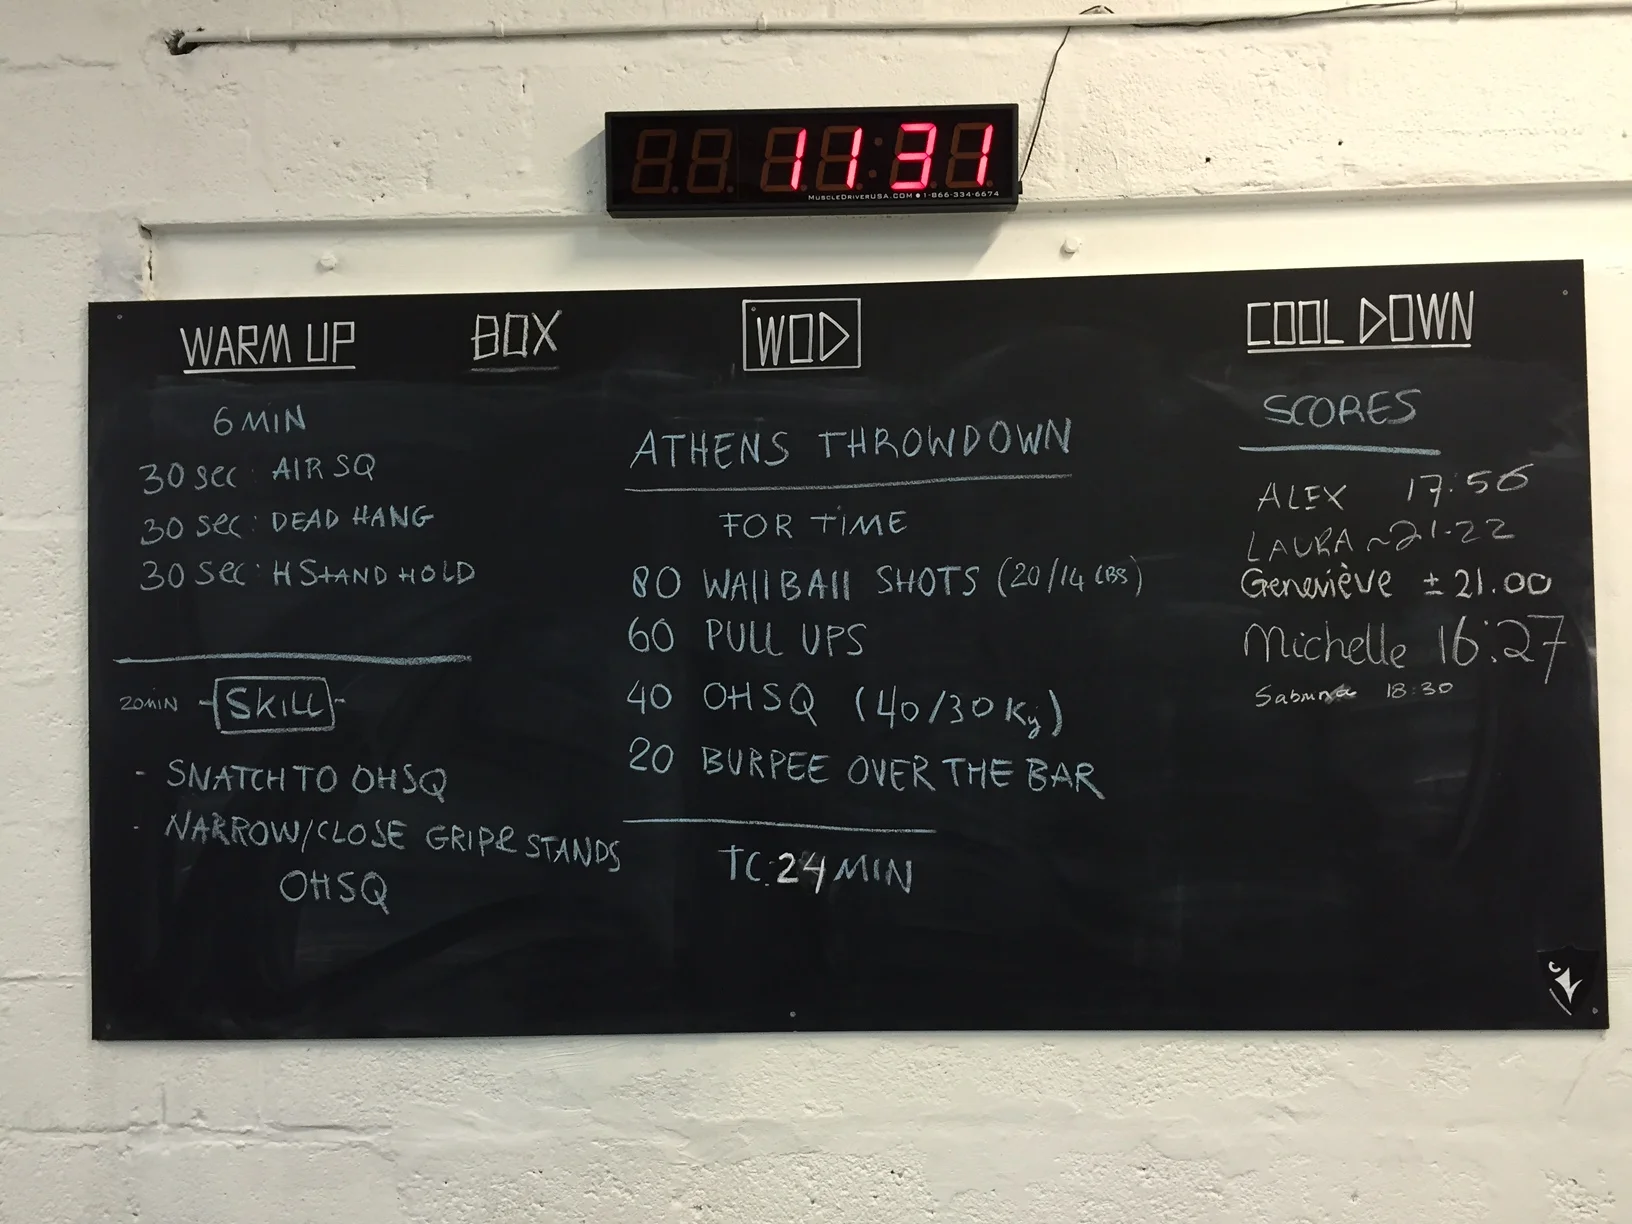 11 31
MUSCLEDRIVERUSA.COM • 1-866-334-6674
WARM UP
6 MIN
30 sec: AIR SQ
30 sec: DEAD HANG
30 sec: H STAND HOLD
20MIN - SKILL -
- SNATCH TO OHSQ
- NARROW/CLOSE GRIP & STANDS
OHSQ
BOX
WOD
ATHENS THROWDOWN
FOR TIME
80 WALLBALL SHOTS (20/14 LBS)
60 PULL UPS
40 OHSQ (40/30 Kg)
20 BURPEE OVER THE BAR
TC: 24 MIN
COOL DOWN
SCORES
ALEX 17:56
LAURA ~21.22
Geneviève ± 21.00
Michelle 16:27
Sabrina 18:30